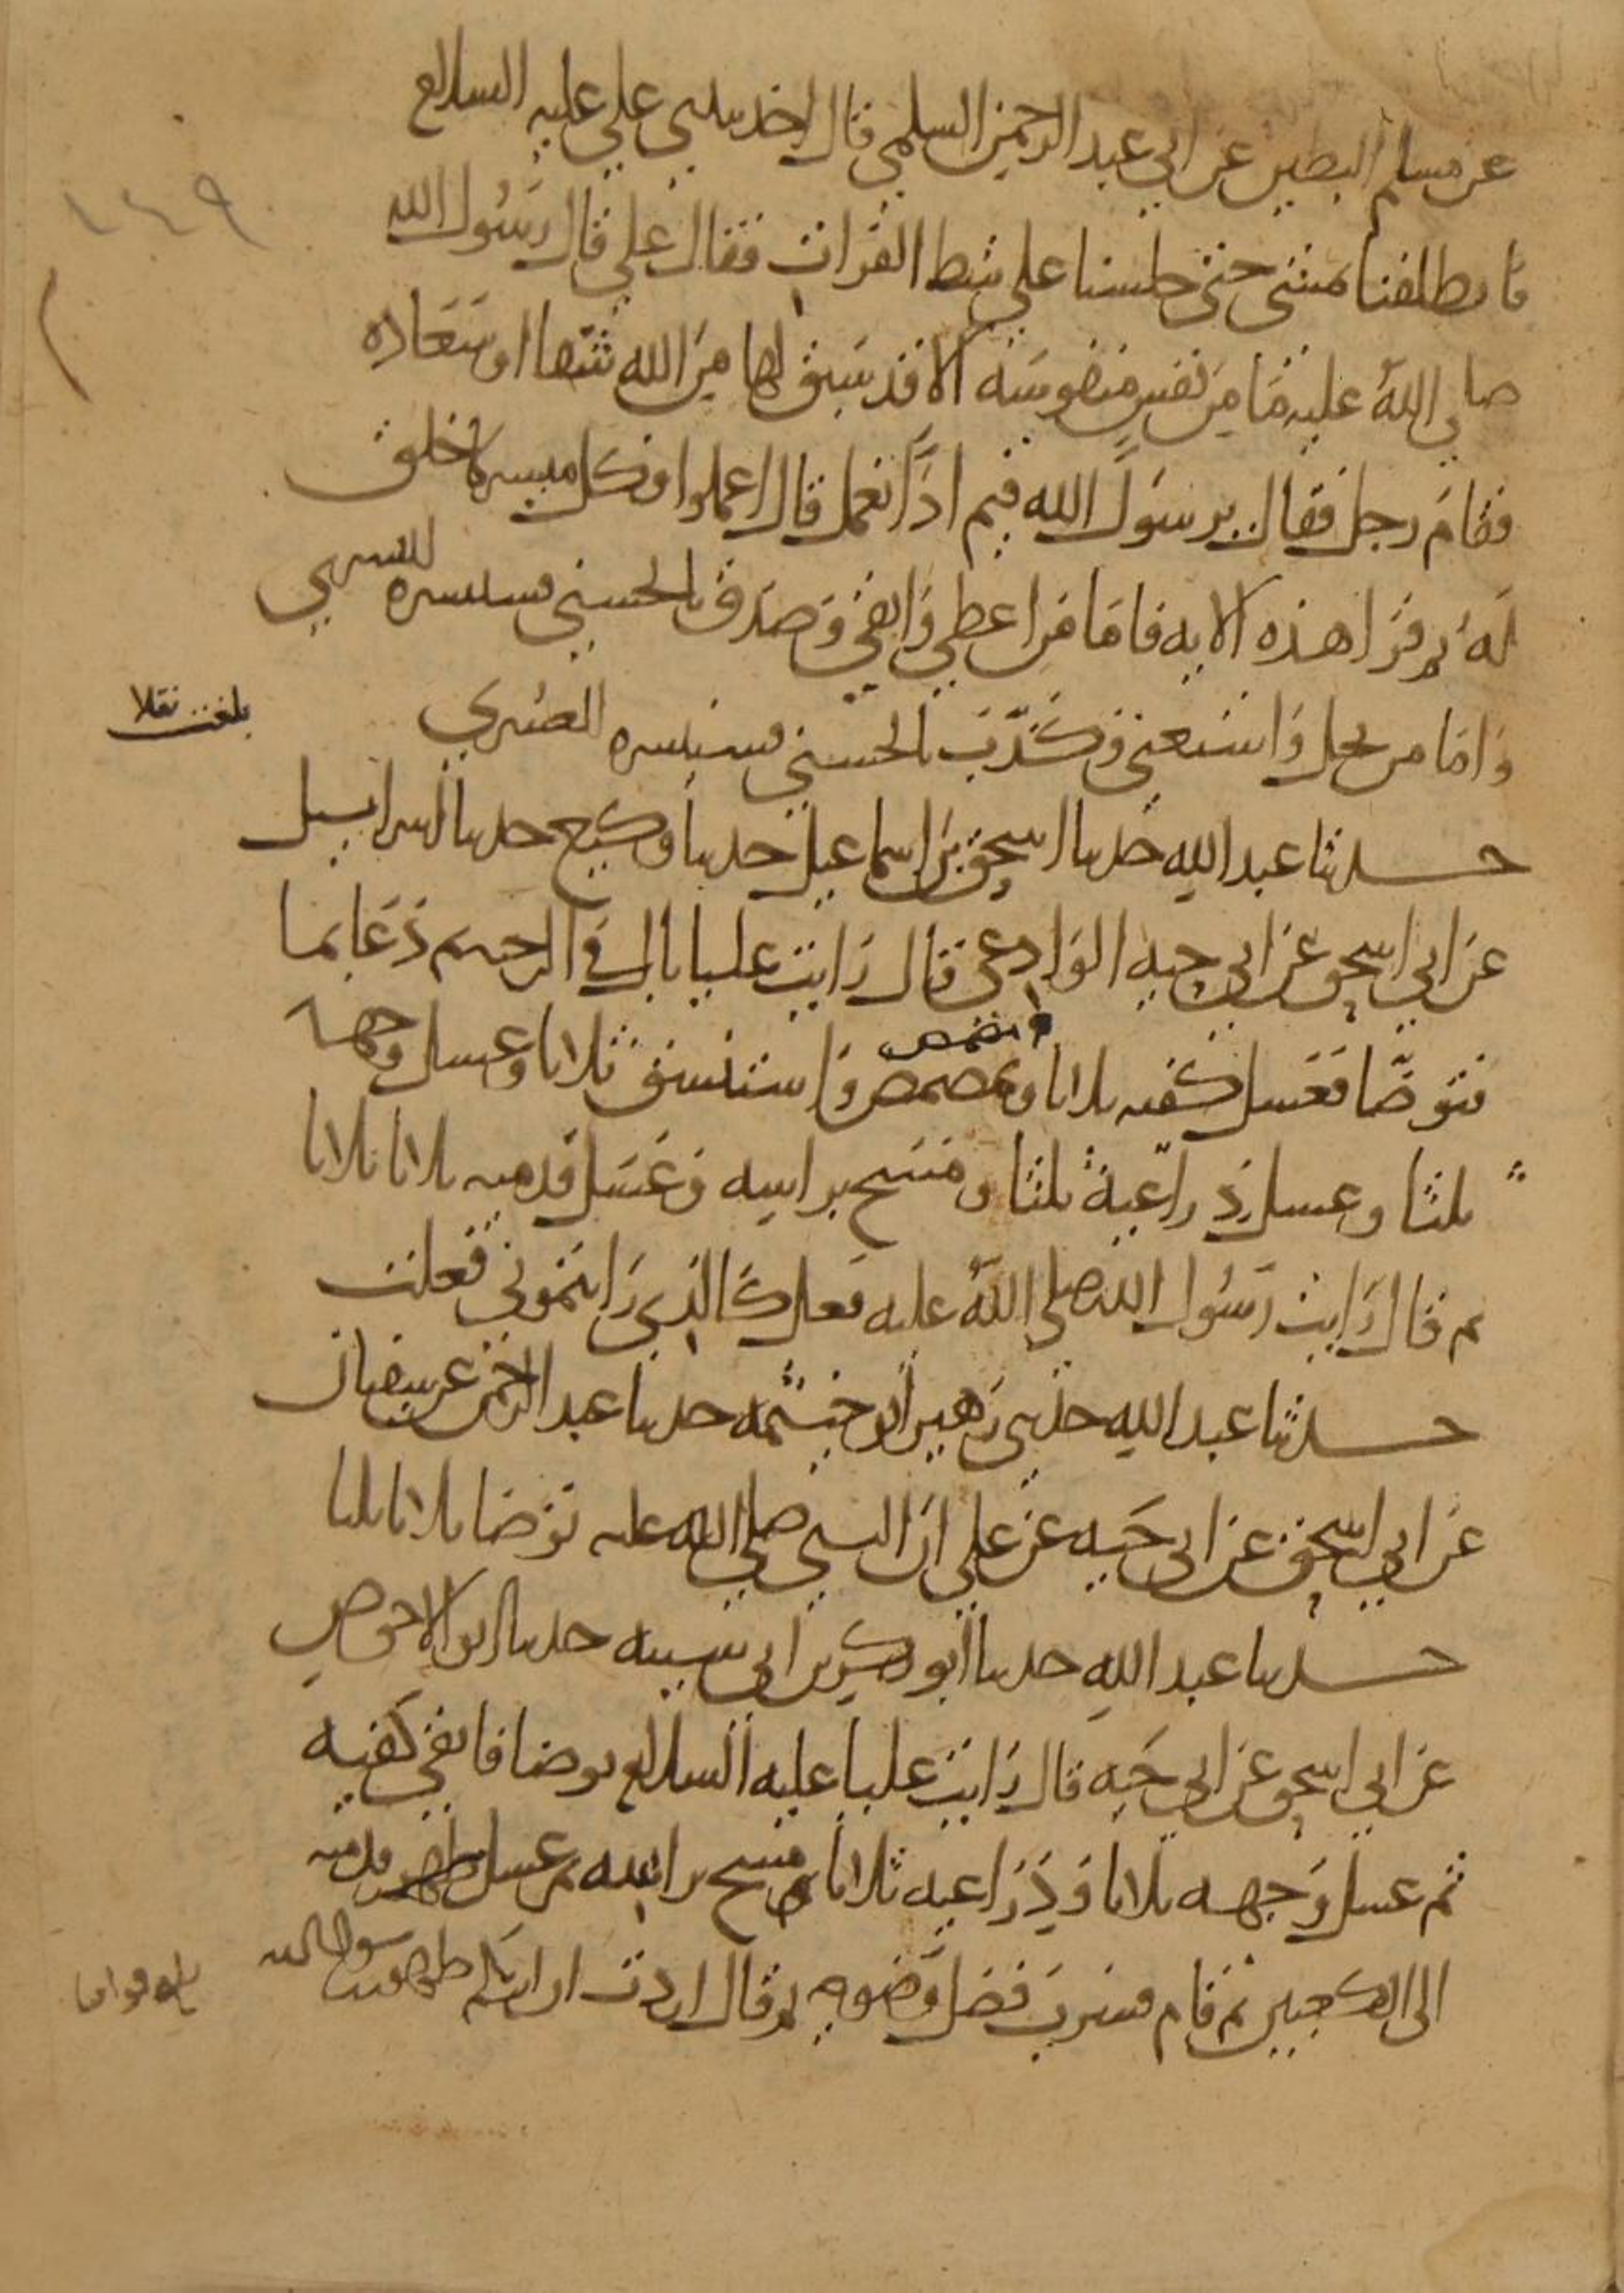 عن مسلم البطين عن ابي عبد الرحمن السلمي قال اخذ بيدي علي عليه السلام
١٤٩
فانطلقنا نمشي حتى جلسنا على شط الفرات فقال علي قال رسول الله
صلى الله عليه ما من نفس منفوسة الا قد سبق لها من الله شقا او سعادة
فقام رجل فقال يرسول الله فيم اذا نعمل قال اعملوا فكل ميسر لما خلق
له ثم قرا هذه الاية فاما من اعطى واتقى وصدق بالحسنى فسنيسره لليسرى
بلغت نقلا
واما من بخل واستغنى وكذب بالحسنى فسنيسره للعسرى
حدثنا عبد الله حدثنا اسحق بن اسماعيل حدثنا وكيع حدثنا اسراييل
عن ابي اسحق عن ابي حية الوادعي قال رايت عليا بال في الرحبة ودعا بما
فتوضا فغسل كفيه ثلاثا وتمضمض واستنشق ثلاثا وغسل وجهه
ثلثا وغسل ذراعيه ثلثا ومسح براسه وغسل قدميه ثلاثا ثلاثا
ثم قال رايت رسول الله صلى الله عليه فعل كالذي رايتموني فعلت
حدثنا عبد الله حدثني زهير ابو خيثمة حدثنا عبد الرحمن عن سفيان
عن ابي اسحق عن ابي حية عن علي ان النبي صلى الله عليه توضا ثلاثا ثلثا
حدثنا عبد الله حدثنا ابو بكر بن ابي شيبة حدثنا ابو الاحوص
عن ابي اسحق عن ابي حية قال رايت عليا عليه السلام توضا فانقى كفيه
ثم غسل وجهه ثلاثا وذراعيه ثلاثا ومسح براسه ثم غسل قدميه
الى الكعبين ثم قام فشرب فضل وضوه ثم قال اردت ان اريكم طهور رسول الله